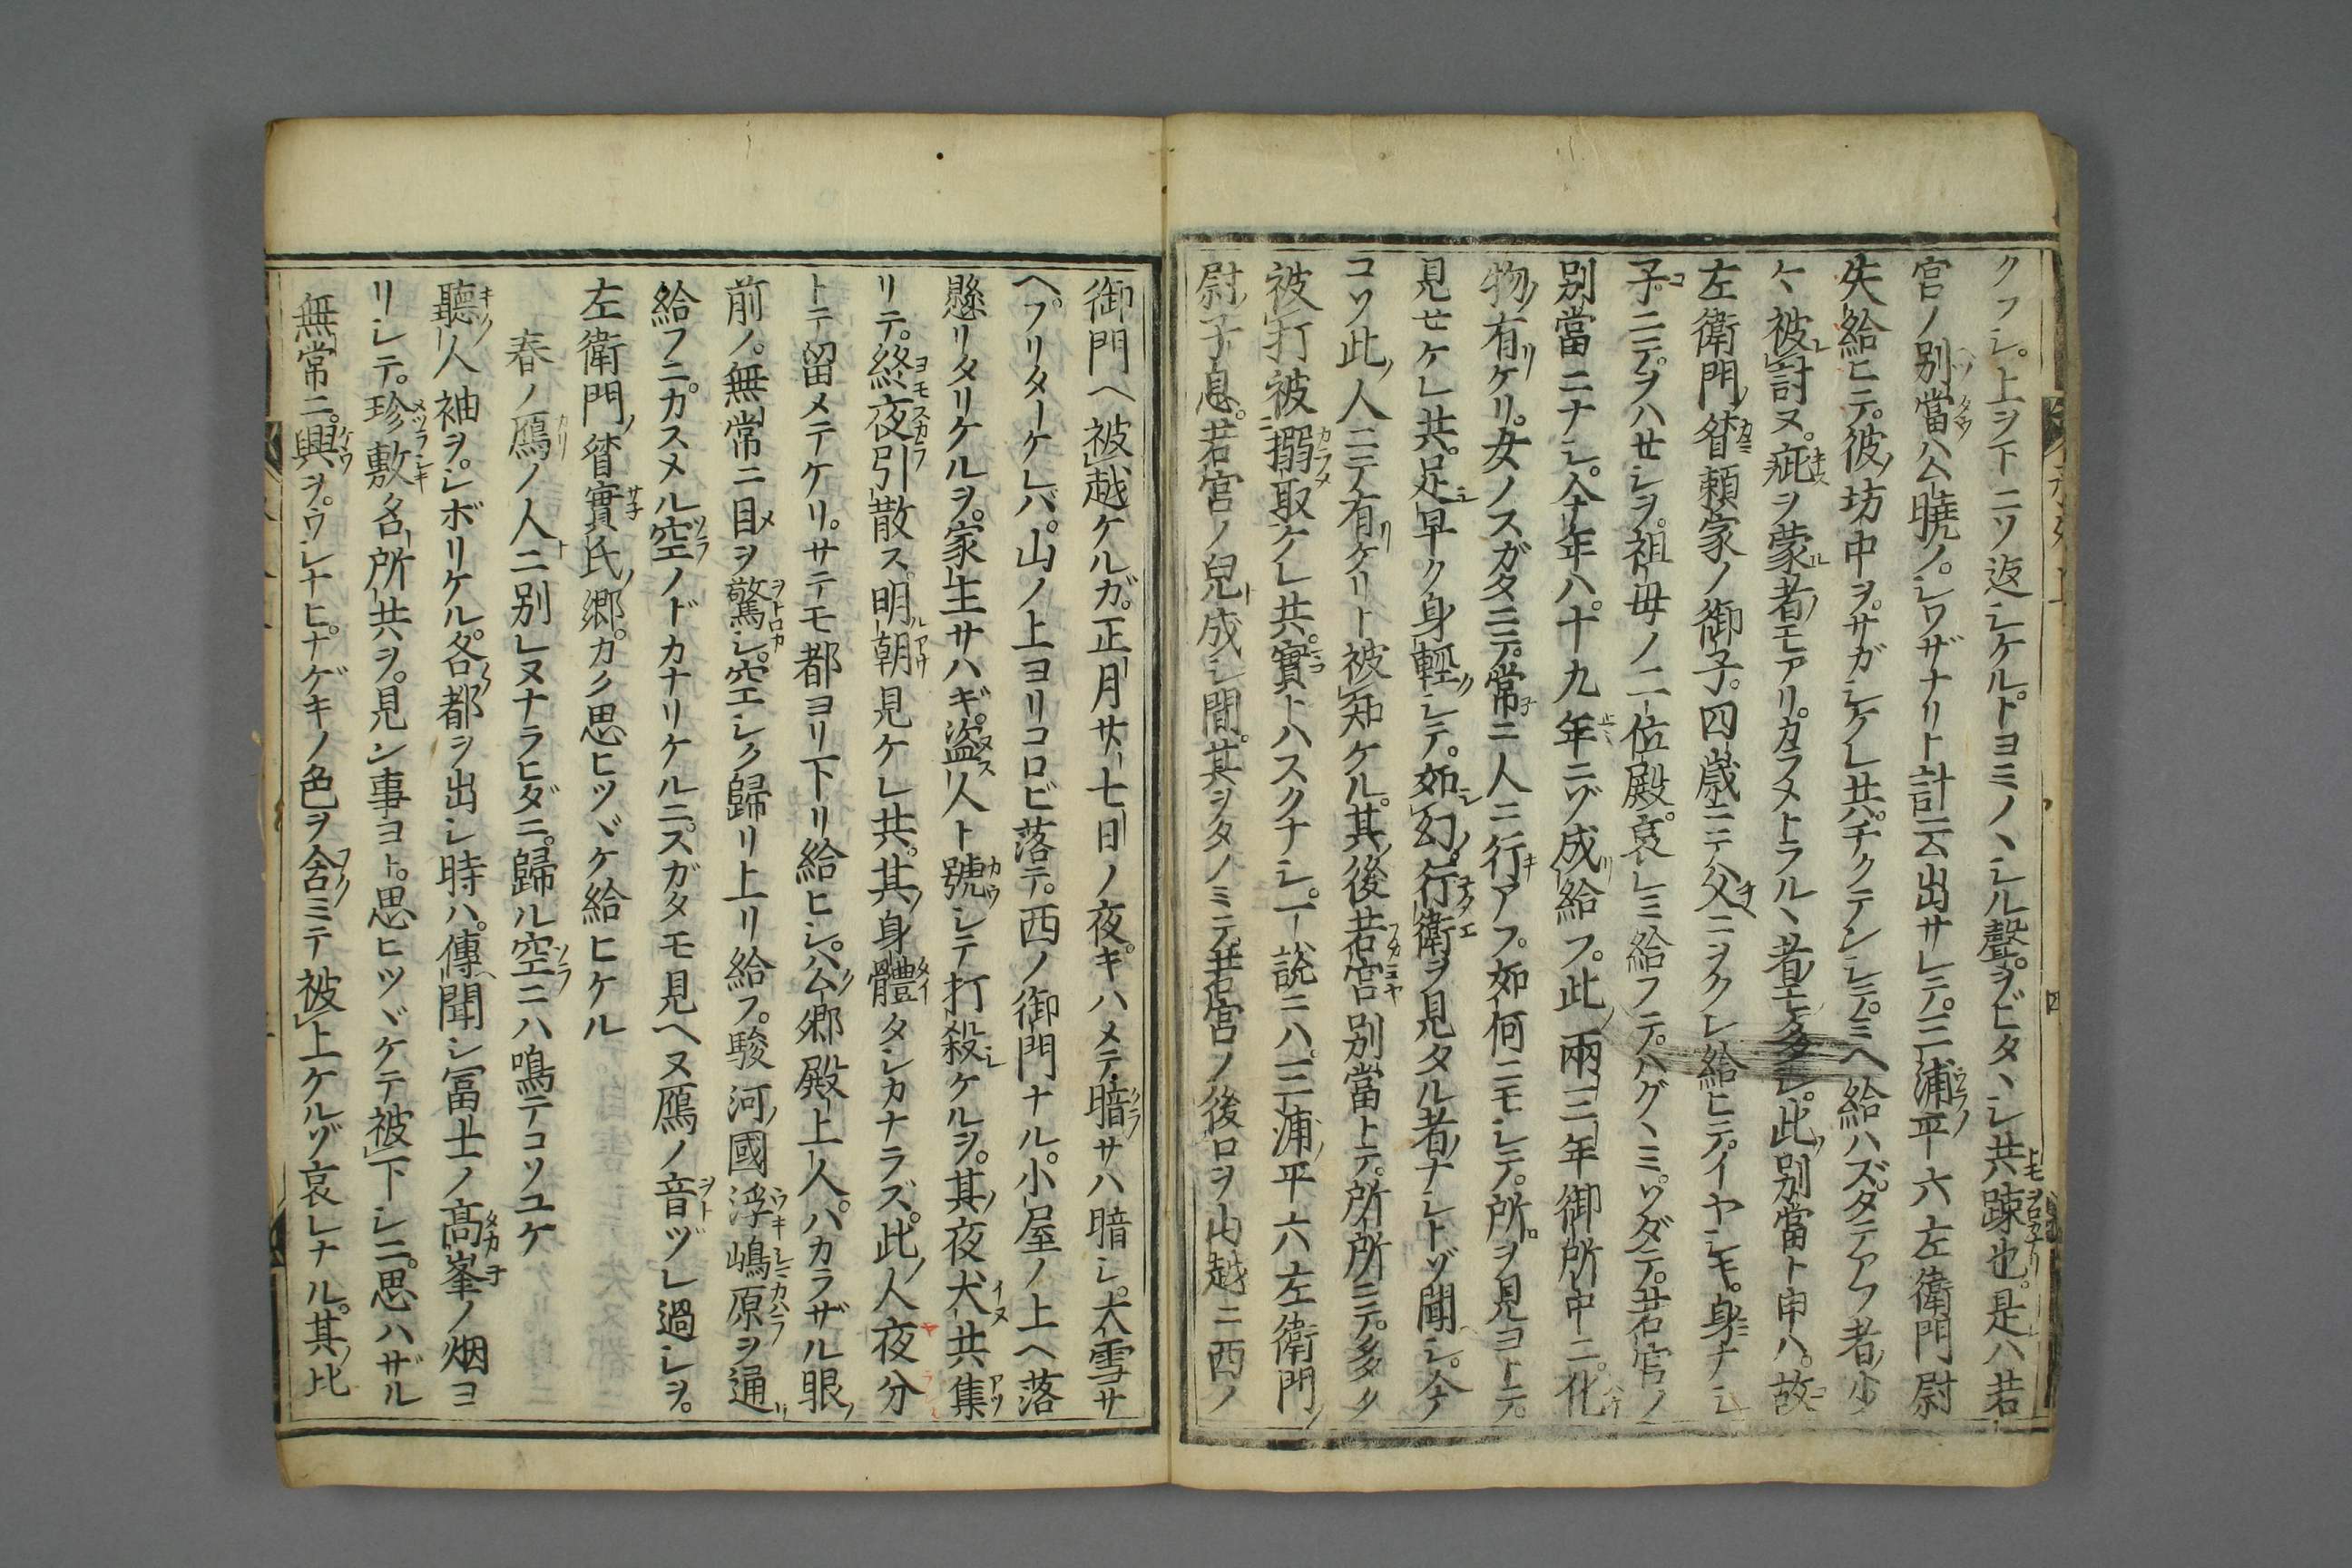 クフシ。上ヲ下ニソ返シケル。トヨミノヽシル聲。ヲビタヽシ共踈也。是ハ若
宮ノ別當公曉ノ。シワザナリト計云出サレテ。三浦平六左衛門尉
失給ヒテ。彼坊中ヲ。サガシケレ共。チクテンシテ。ミヘ給ハズ。タテアフ者少
々被討ヌ。疵ヲ蒙者モアリ。カラメトラルヽ者モ多シ。此別當ト申ハ。故
左衛門督頼家ノ御子。四歳ニテ父ニヲクレ給ヒテ。イヤシキ。身ナシ
子ニテヲハセシヲ。祖母ノ二位殿。哀レミ給フテ。ハグヽミ。ソダテ。若宮ノ
別當ニナシ。今年ハ。十九年ニゾ成給フ。此兩三年御所中ニ。化
物有ケリ。女ノスガタニテ。常ニ人ニ行アフ。如何ニモシテ。所ヲ見ヨトテ。
見セケレ共。足早ク身輕シテ。如幻。行衛ヲ見タル者ナシトゾ聞シ。今
コソ此人ニテ有ケリト被知ケル。其後若宮別當トテ。所所ニテ。多ク
被打被搦取ケレ共。實トハスクナシ。一説ニハ。三浦平六左衛門
尉子息。若宮ノ兒成シ間。其ヲタノミテ。若宮ノ後ロヲ山越ニ西ノ
御門ヘ被越ケルガ。正月廿七日ノ夜。キハメテ暗サハ暗シ。大雪サ
ヘフリターケレバ。山ノ上ヨリコロビ落テ。西ノ御門ナル。小屋ノ上ヘ落
懸リタリケルヲ。家主サハギ。盗人ト號シテ打殺ケルヲ。其夜犬共集
リテ。終夜引散ス。明朝見ケレ共。其身體タシカナラズ。此人夜分
トテ留メテケリ。サテモ都ヨリ下リ給ヒシ。公卿殿上人。ハカラザル眼
前ノ。無常ニ目ヲ驚シ。空シク歸リ上リ給フ。駿河國浮嶋原ヲ通
給フニ。カスメル空ノドカナリケルニ。スガタモ見ヘヌ鴈ノ音ヅレ過シヲ。
左衛門督實氏卿。カク思ヒツヾケ給ヒケル
春ノ鴈ノ人ニ別レヌナラヒダニ。歸ル空ニハ鳴テコソユケ
聽人袖ヲ。シボリケル。各都ヲ出シ時ハ。傳聞シ冨士ノ高峯ノ烟ヨ
リシテ。珍敷名所共ヲ。見ン事ヨト。思ヒツヾケテ被下シニ。思ハザル
無常ニ。興ヲ。ウシナヒ。ナゲキノ色ヲ含ミテ被上ケルゾ哀レナル。其比